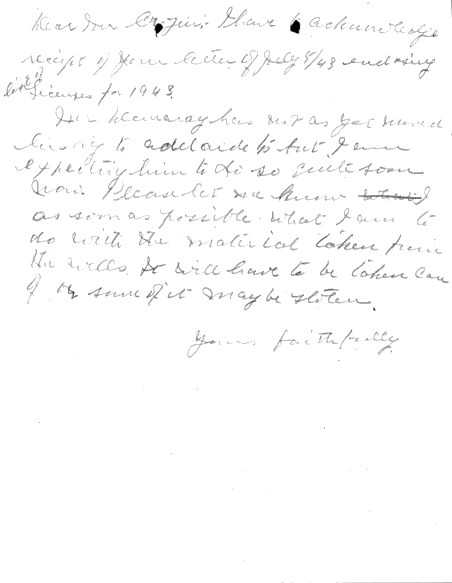 Dear Don I have to acknowledge
receipt of your letter of July 5/43 enclosing
list of Licenses for 1943.
has not as yet moved
to Adelaide St but I am
expecting him to do so quite soon
now. Please let me know
as soon as possible what I am to
do with the material taken from
the wells. It will have to be taken care
of or some of it may be stolen.
Yours faithfully